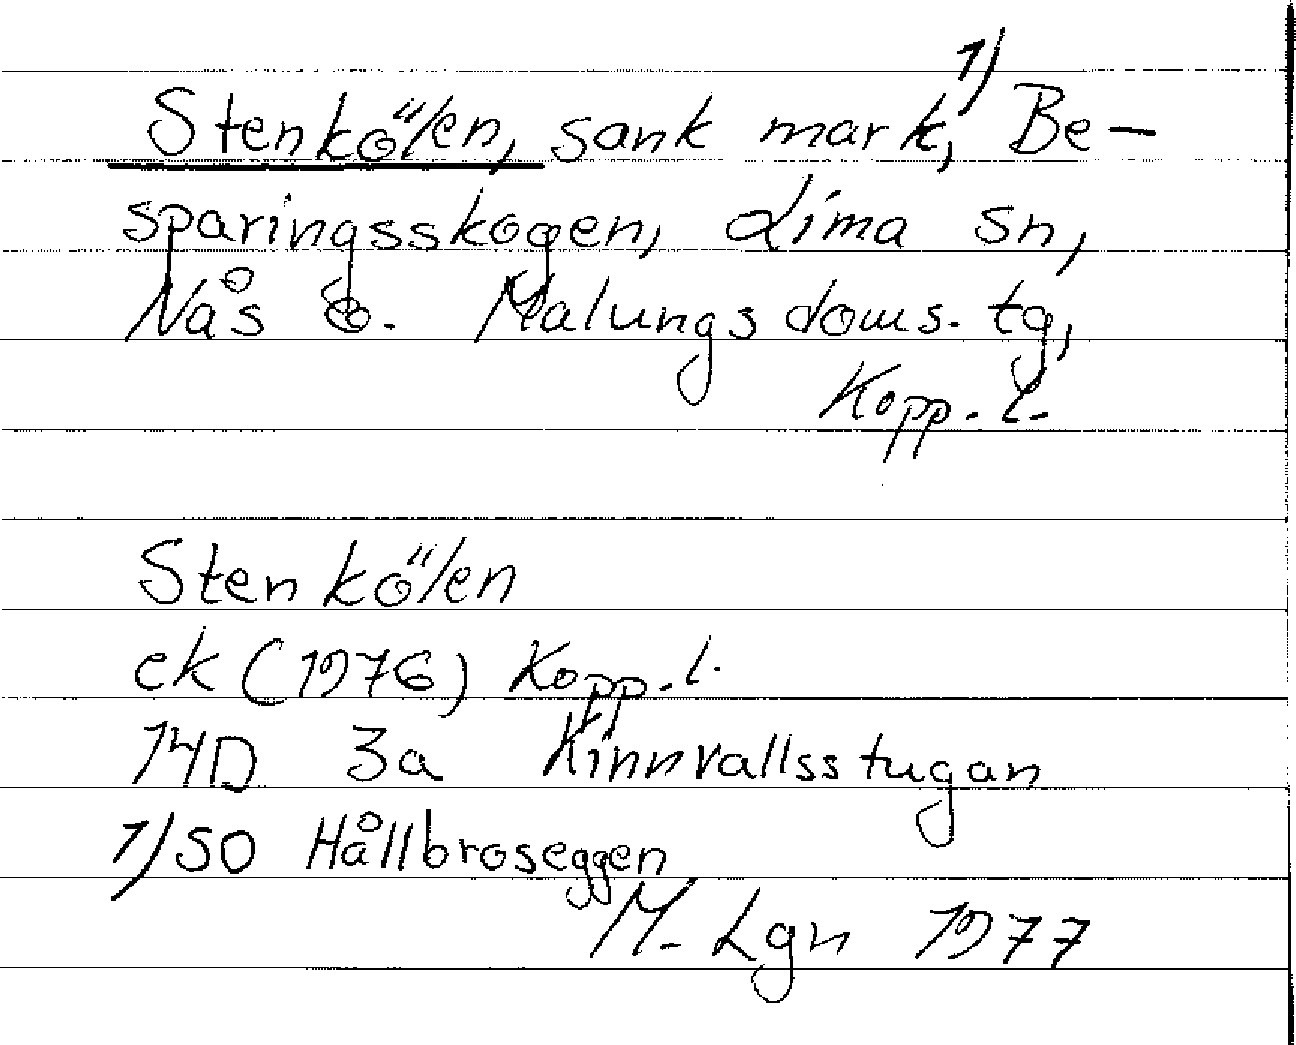 Stenkölen, sank mark,1) Be-
sparingsskogen, Lima sn,
Nås o. Malungs doms. tg,
Kopp. l.
Stenkölen
ek (1976) Kopp. l.
14D 3a Kinnvallsstugan
1) SO Hållbroseggen
M. Lgn 1977